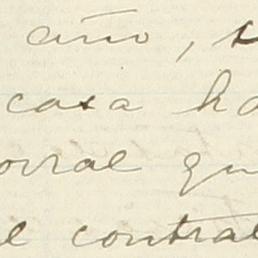 año,
casa ha
orral qu
el contrat